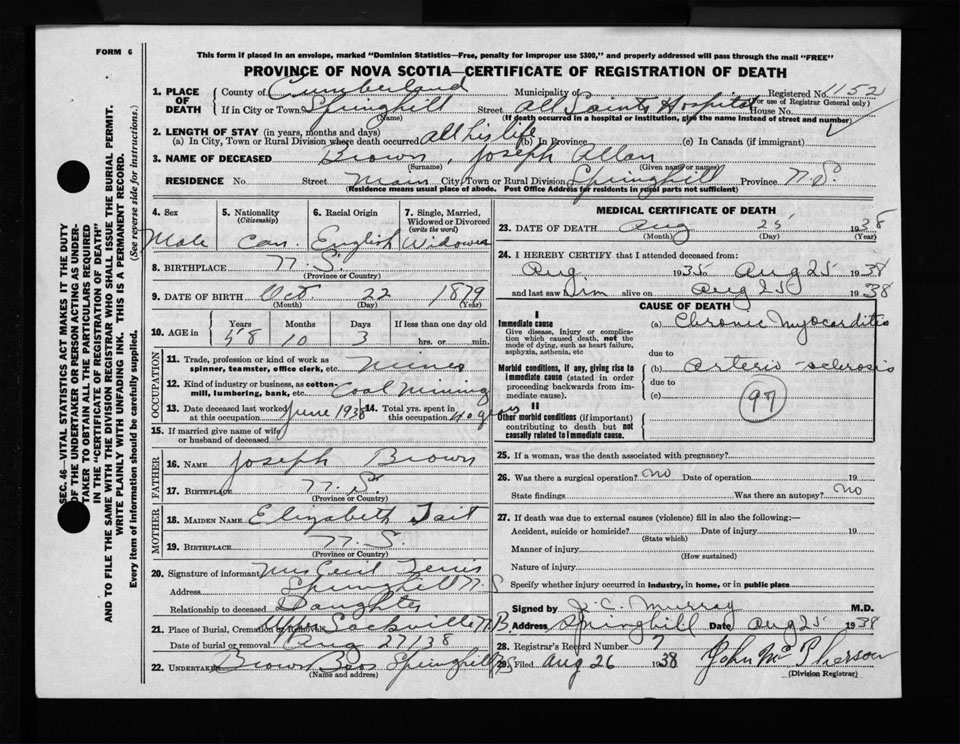 FORM 6
This form if placed in an envelope, marked "Dominion Statistics—Free, penalty for improper use $300," and properly addressed will pass through the mail "FREE"
PROVINCE OF NOVA SCOTIA—CERTIFICATE OF REGISTRATION OF DEATH
SEC. 46—VITAL STATISTICS ACT MAKES IT THE DUTY
OF THE UNDERTAKER OR PERSON ACTING AS UNDER-
TAKER TO OBTAIN ALL THE PARTICULARS REQUIRED
IN THE "CERTIFICATE OF REGISTRATION OF DEATH"
AND TO FILE THE SAME WITH THE DIVISION REGISTRAR WHO SHALL ISSUE THE BURIAL PERMIT.
WRITE PLAINLY WITH UNFADING INK. THIS IS A PERMANENT RECORD.
Every item of information should be carefully supplied. (See reverse side for instructions.)
1. PLACE OF DEATH County of Cumberland Municipality of Registered No. 1152
(For use of Registrar General only)
If in City or Town Springhill Street All Saints Hospital House No.
(Name) (If death occurred in a hospital or institution, give the name instead of street and number)
2. LENGTH OF STAY (in years, months and days)
(a) In City, Town or Rural Division where death occurred all his life (b) In Province (c) In Canada (if immigrant)
3. NAME OF DECEASED Brown, Joseph Allan
(Surname) (Given name or names)
RESIDENCE No. Street Main City, Town or Rural Division Springhill Province N.S.
(Residence means usual place of abode. Post Office Address for residents in rural parts not sufficient)
4. Sex Male
5. Nationality (Citizenship) Can.
6. Racial Origin English
7. Single, Married, Widowed or Divorced (write the word) Widower
8. BIRTHPLACE N.S.
(Province or Country)
9. DATE OF BIRTH Oct. 22 1879
(Month) (Day) (Year)
10. AGE in Years 58 Months 10 Days 3 If less than one day old hrs. or min.
OCCUPATION
11. Trade, profession or kind of work as spinner, teamster, office clerk, etc. Miner
12. Kind of industry or business, as cotton-mill, lumbering, bank, etc. Coal Mining
13. Date deceased last worked at this occupation June 1938 14. Total yrs. spent in this occupation 40 years
15. If married give name of wife or husband of deceased
FATHER
16. NAME Joseph Brown
17. BIRTHPLACE N.S.
(Province or Country)
MOTHER
18. MAIDEN NAME Elizabeth Tait
19. BIRTHPLACE N.S.
(Province or Country)
20. Signature of informant Mrs Cecil
Address Springhill N.S
Relationship to deceased Daughter
21. Place of Burial, Cremation or Removal Upper Sackville N.B.
Date of burial or removal Aug 27/38
22. UNDERTAKER Brown Bros Springhill NS
(Name and address)
MEDICAL CERTIFICATE OF DEATH
23. DATE OF DEATH Aug 25 1938
(Month) (Day) (Year)
24. I HEREBY CERTIFY that I attended deceased from:
Aug. 1935 to Aug 25 1938
and last saw him alive on Aug 25 1938
CAUSE OF DEATH
I
Immediate cause
Give disease, injury or complication which caused death, not the mode of dying, such as heart failure, asphyxia, asthenia, etc
(a) Chronic Myocarditis
due to
Morbid conditions, if any, giving rise to immediate cause (stated in order proceeding backwards from immediate cause).
(b) Arterio-sclerosis
due to
(c)
97
II
Other morbid conditions (if important) contributing to death but not causally related to immediate cause.
25. If a woman, was the death associated with pregnancy?
26. Was there a surgical operation? no Date of operation 19
State findings Was there an autopsy? No
27. If death was due to external causes (violence) fill in also the following:—
Accident, suicide or homicide? Date of injury 19
(State which)
Manner of injury
(How sustained)
Nature of injury
Specify whether injury occurred in industry, in home, or in public place
Signed by J. C. Murray M.D.
Address Springhill Date Aug 25 1938
28. Registrar's Record Number 7
29. Filed Aug 26 1938 John McPherson
(Division Registrar)